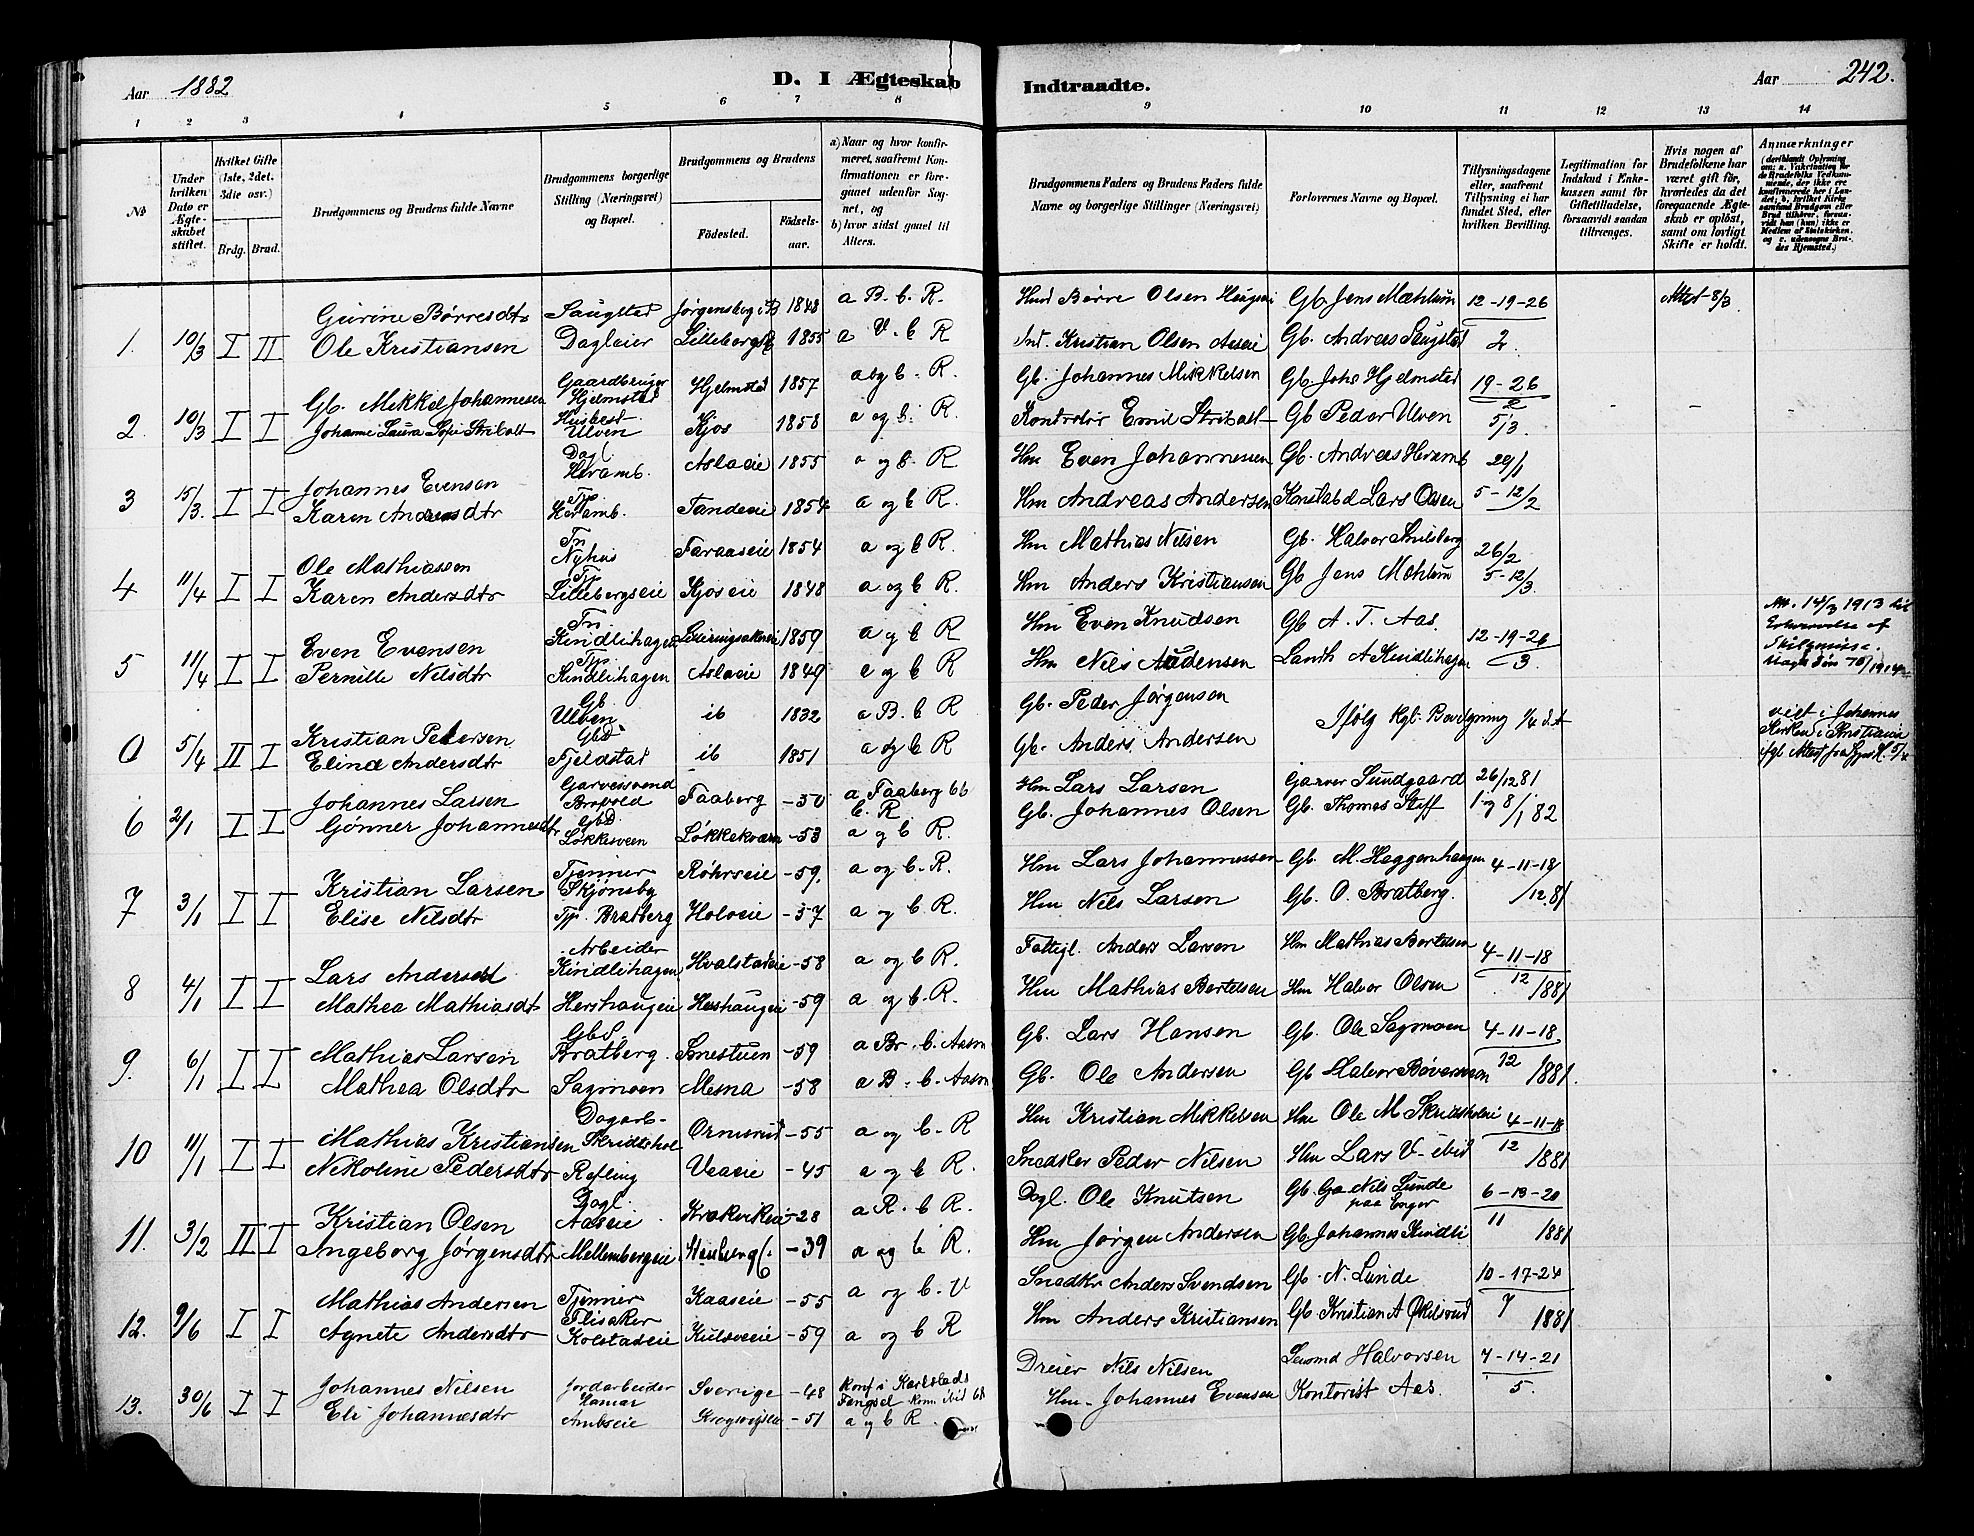 Aar 1882
D. I Ægteskab Indtraadte.
Aar 242.
1 2 3 4 5 6 7 8 9 10 11 12 13 14
№
Under hvilken Dato er Ægteskabet stiftet.
Hvilket Gifte (1ste, 2det, 3die osv.)
Brdg. Brud.
Brudgommens og Brudens fulde Navne
Brudgommens borgerlige Stilling (Næringsvei) og Bopæl.
Brudgommens og Brudens
Födested. Födsels-aar.
a) Naar og hvor konfirmeret, saafremt Konfirmationen er foregaaet udenfor Sognet, og
b) hvor sidst gaaet til Alters.
Brudgommens Faders og Brudens Faders fulde Navne og borgerlige Stillinger (Næringsvei)
Forlovernes Navne og Bopæl.
Tillysningsdagene eller, saafremt Tillysning ei har fundet Sted, efter hvilken Bevilling.
Legitimation for Indskud i Enkekassen samt for Giftetilladelse, forsaavidt saadan tiltrænges.
Hvis nogen af Brudefolkene har været gift för, hvorledes da det foregaaende Ægteskab er oplöst, samt om lovligt Skifte er holdt.
Anmærkninger
Gurine Børresdtr Saugstad Jørgensbog i B 1848 a B. b. R. Husm Børre Olsen Gb. Jens Mæhlum 12-19-26 Attest 8/3
1. 10/3 I II Ole Kristiansen Dagleier 1855 a V. b R Ind. Kristian Olsen Aaseie Gb. Andreas Saugstad 2.
Gb. Mikkel Johannesen Gaardbruger Hjelmstad Hjelmstad 1857 a og b. R. Gb. Johannes Mikkelsen Gb. Johs Hjelmstad 19-26
2. 10/3 I I Johanne Laura Sofie Stribolt Ulven Kjos 1858 a og b. R. Kontrolør Emil Stribolt Gb Peder Ulven 2 5/3.
Johannes Evensen Dagl Heramb. Aslaeie 1855 a og b. R Hm Even Johannessen Gb. Andreas Heramb 29/1
3 15/3. I I Karen Andreasdtr Tp Heramb. Tandeeie 1854 a og b R. Hm Andreas Andersen Lars Olsen 5-12/2
Ole Mathiassen Tn Nyhus Faraaseie 1854 a og b R. Hm Mathias Nilsen Gb. Halvor Smisberg 26/2
4 11/4 I I Karen Andersdtr Tp Lillebergseie Kjoseie 1848 a og b R. Hm Anders Kristiansen Gb Jens Mæhlum 5-12/3
Even Evensen Tn. Kindlihagen 1859 a og b R Hm Even Knudsen Gb A. T. Aas. 12-19-26
5 11/4 I I Pernille Nilsdtr Tp Kindlihagen Aslaeie 1849 a og b R Hm Nils Audensen Landh A Kindlihagen 3. Att. 14/3 1913
Kristian Pedersen Gb Ulven ib 1832 a B. b R Gb. Peder Jørgensen Ifølg Kgl. Bevilgning 1/4 d.A
0 5/4 II I Elina Andersdtr Gbd Fjeldstad ib 1851 a og b R Gb. Anders Andersen viet i Johannes Kirken i Kristiania
Johannes Larsen Garversvend Faaberg -50 a Faaberg 66 b. R. Hm Lars Larsen Garver Sundgaard 26/12 81
6 2/1 I I Gønner Johannesdtr Gbd. Løkkesveen Løkkekværn -53 a og b R. Gb. Johannes Olsen Gb. Thomas Stiff 1 og 8/1 82
Kristian Larsen Tjener Skjønsby Røhrseie -59. a og b. R. Hm Lars Johannessen Gb. M. Haggenhaugen 4-11-18
7 3/1 I I Elise Nilsdtr Tp. Bratberg Holoeie -57 a og b R. Hm Nils Larsen Gb. O. Bratberg. /12 81
Lars Andersen Arbeider Kindlihagen Hvalstadeie -58 a og b R. Fattigl. Anders Larsen Hm Mathias Bertelsen 4-11-18
8 4/1 I I Mathea Mathiasdtr Hershaugeie Heshaugeie -59 a og b. R. Hm Mathias Bertelsen Hm Halvor Olsen 12/1881
Mathias Larsen Gbd S. Bratberg. Snestuen -59 a Br. b. Aasm Gb. Lars Hansen Gb. Ole Sagmoen 4-11-18
9. 6/1 I I Mathea Olsdtr Sagmoen Mesna -58 a B. b. Aasm Gb. Ole Andersen Gb Halvor Bøvermoen 12 1881.
Mathias Kristiansen Dagarb- Ormsrud -55 a og b. R Hm Kristian Mikkelsen Hm Ole M Skridsholeie 4-11-18
10 11/1 I I Nikoline Pedersdtr Refling Veaeie -45 a og b R. Snedker Peder Nilsen Hm Lars V- ibid 12 /1881
Kristian Olsen Dagl. Aaseie Krakvikeie -28 a R. b R. Dagl. Ole Knutsen Gb. Nils Lunde paa Enger 6-13-20
11. 3/2 II I Ingeborg Jørgensdtr Mellembergeie -39 a og b R. Hm Jørgen Andersen Gb Johannes Kindli 11 1881
Mathias Andersen Tjener Flisaker Kaaseie -55 a og b. V Snedkr Anders Svendsen Gb. N. Lunde 10-17-24
12. 9/6 I I Agnete Andersdtr Kolstadeie Kulsveeie -59 a og b R Hm Anders Kristiansen Gb. Kristian A Økelsrud 7 1881
Johannes Nilsen Jordarbeider Hamar Sverige -48 Konf i Karlstads Fængsel Kom. ibid 68 Dreier Nils Nilsen Halvorsen 7-14-21
13. 30/6 I I Eli Johannesdtr Ambseie -51 a og b R. Hm. Johannes Evensen Kontorist Aas. 5.